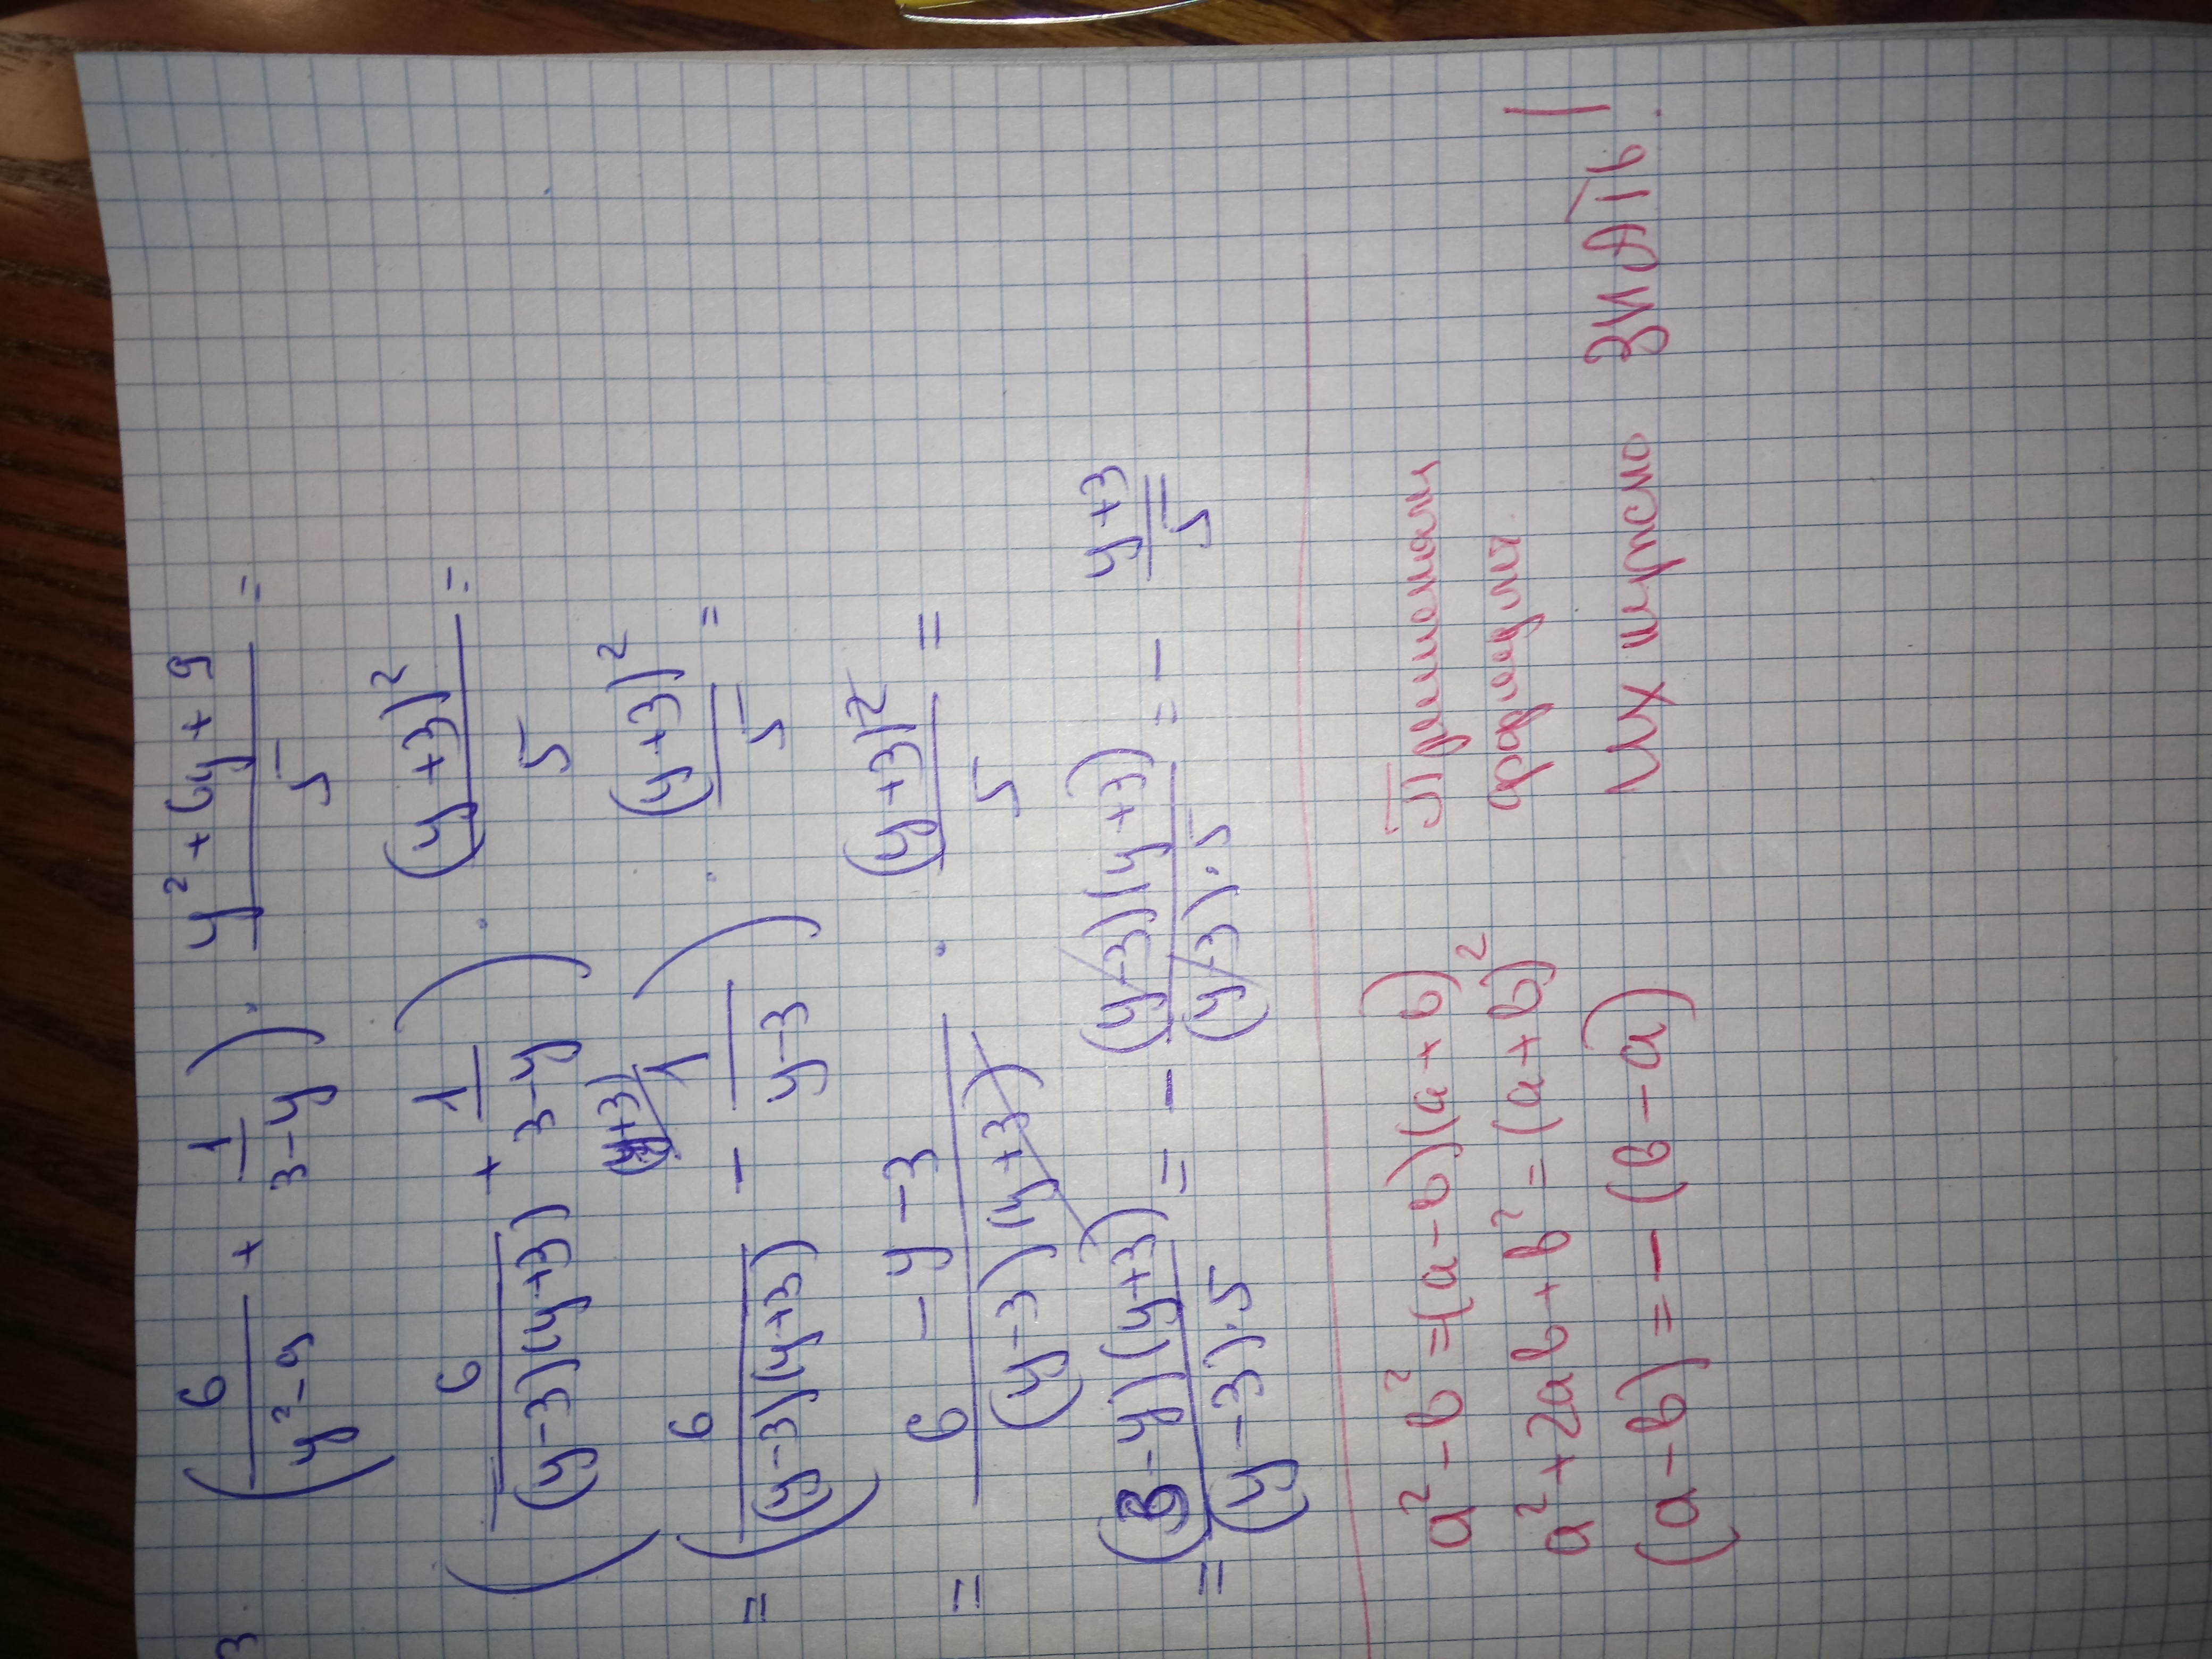 3. (6/(y²-9) + 1/(3-y)) · (y²+6y+9)/5 =
(6/((y-3)(y+3)) + 1/(3-y)) · (y+3)²/5 =
= (6/((y-3)(y+3)) - 1 (y+3)/(y-3)) · (y+3)²/5 =
= (6-y-3)/((y-3)(y+3)) · (y+3)²/5 =
= ((3-y)(y+3))/((y-3)·5) = - ((y-3)(y+3))/((y-3)·5) = - (y+3)/5
a²-b²=(a-b)(a+b) Применяли
a²+2ab+b²=(a+b)² формулы
(a-b)=-(b-a) Их нужно ЗНАТЬ!